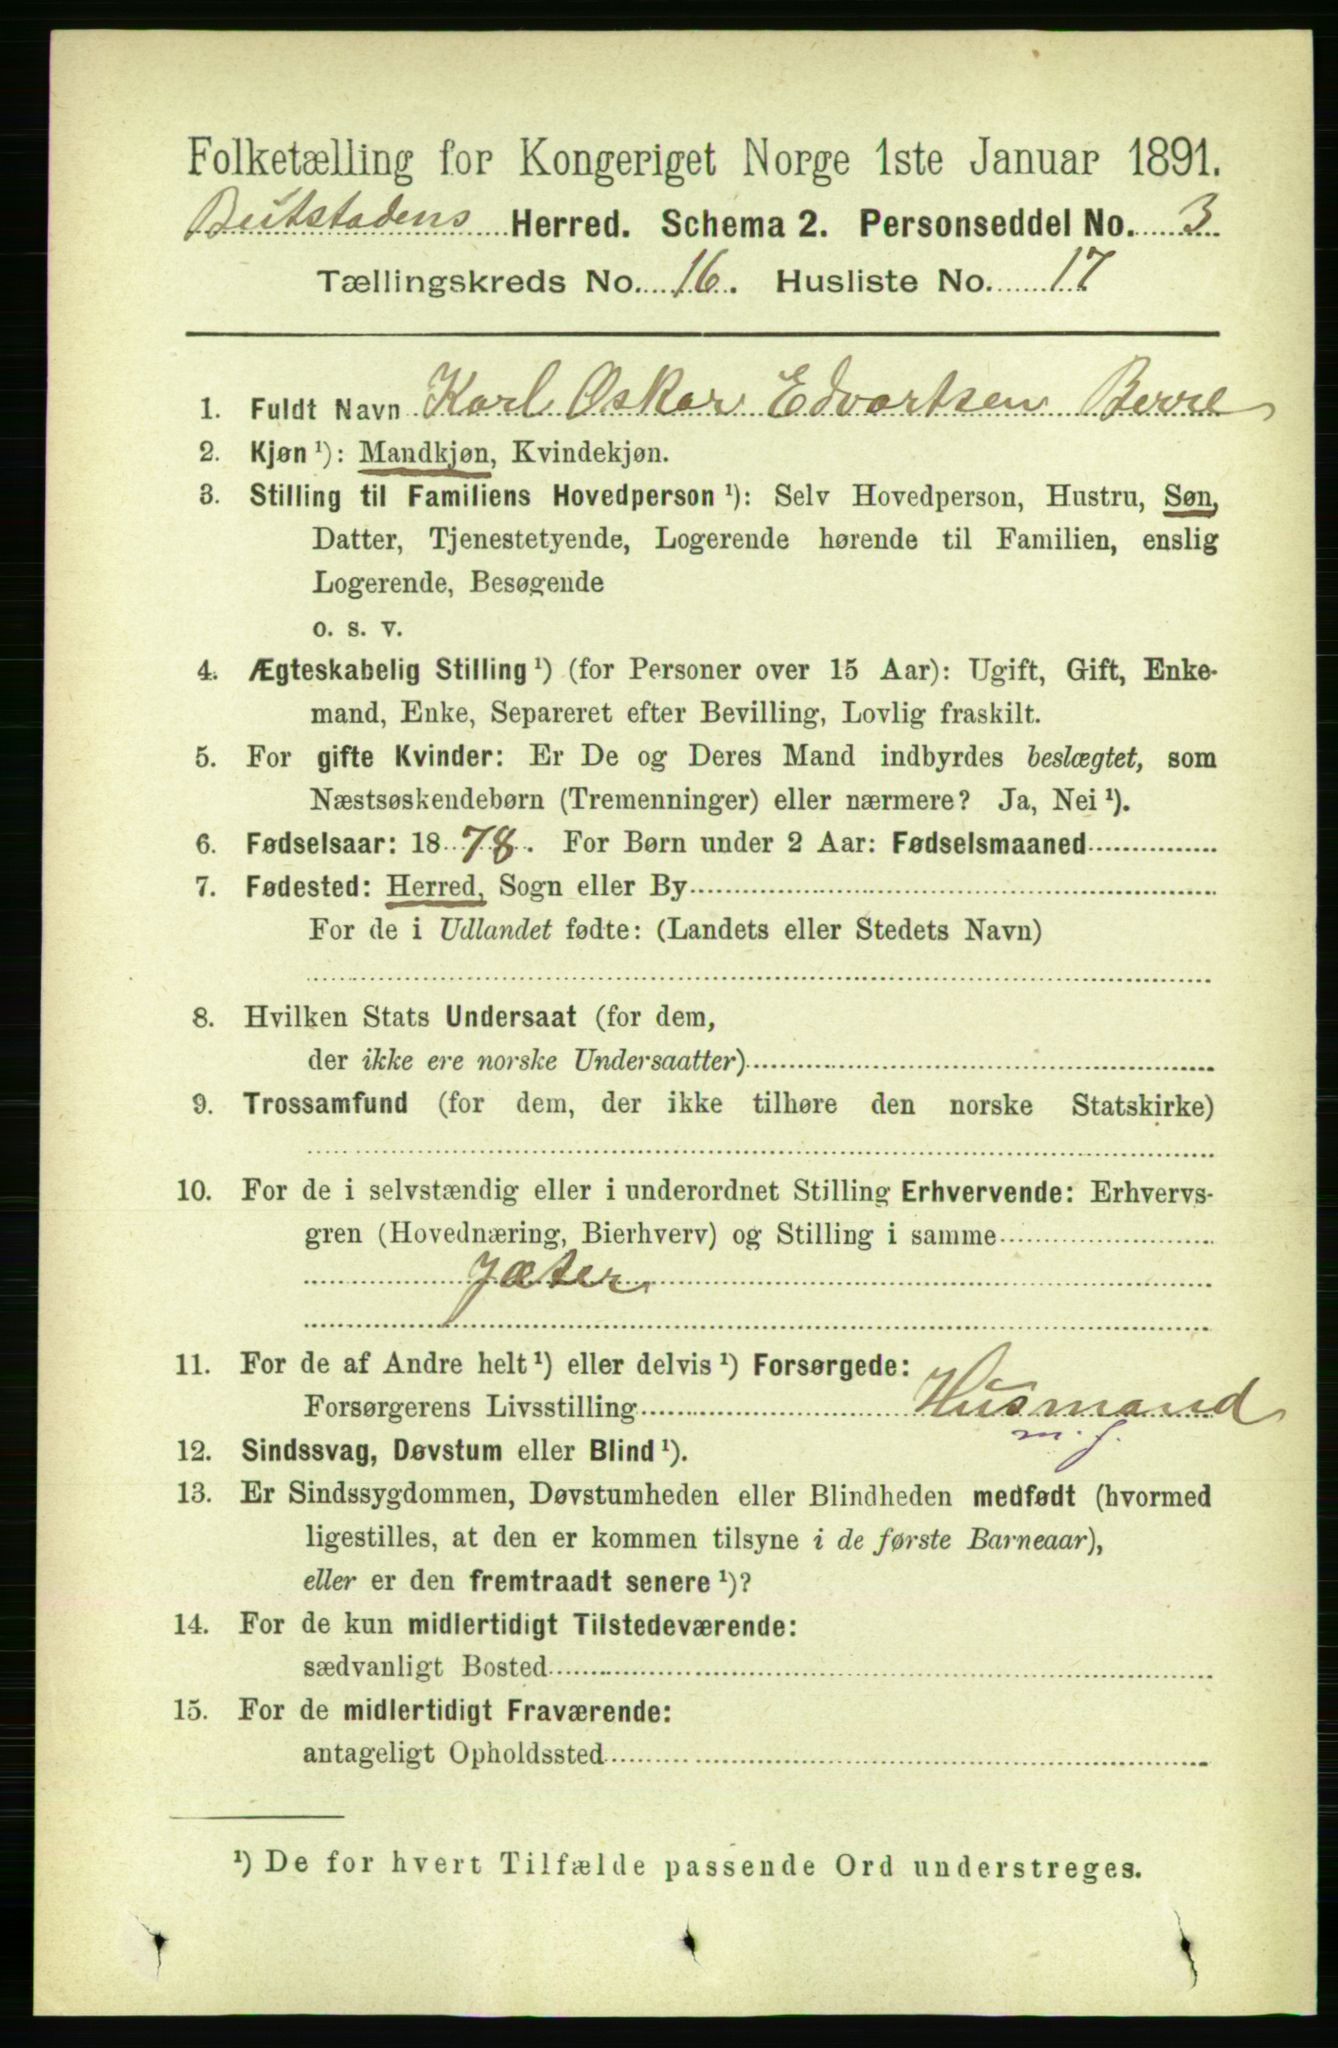 Folketælling for Kongeriget Norge 1ste Januar 1891.
Beitstadens Herred. Schema 2. Personseddel No. 3
Tællingskreds No. 16. Husliste No. 17
1. Fuldt Navn Karl Oskar Edvartsen Berre
2. Kjøn ¹): Mandkjøn, Kvindekjøn.
3. Stilling til Familiens Hovedperson ¹): Selv Hovedperson, Hustru, Søn,
Datter, Tjenestetyende, Logerende hørende til Familien, enslig
Logerende, Besøgende
o. s. v.
4. Ægteskabelig Stilling ¹) (for Personer over 15 Aar): Ugift, Gift, Enke-
mand, Enke, Separeret efter Bevilling, Lovlig fraskilt.
5. For gifte Kvinder: Er De og Deres Mand indbyrdes beslægtet, som
Næstsøskendebørn (Tremenninger) eller nærmere? Ja, Nei ¹).
6. Fødselsaar: 1878. For Børn under 2 Aar: Fødselsmaaned
7. Fødested: Herred, Sogn eller By
For de i Udlandet fødte: (Landets eller Stedets Navn)
8. Hvilken Stats Undersaat (for dem,
der ikke ere norske Undersaatter)
9. Trossamfund (for dem, der ikke tilhøre den norske Statskirke)
10. For de i selvstændig eller i underordnet Stilling Erhvervende: Erhvervs-
gren (Hovednæring, Bierhverv) og Stilling i samme
Jæter
11. For de af Andre helt ¹) eller delvis ¹) Forsørgede:
Forsørgerens Livsstilling Husmand
m. j.
12. Sindssvag, Døvstum eller Blind ¹).
13. Er Sindssygdommen, Døvstumheden eller Blindheden medfødt (hvormed
ligestilles, at den er kommen tilsyne i de første Barneaar),
eller er den fremtraadt senere ¹)?
14. For de kun midlertidigt Tilstedeværende:
sædvanligt Bosted
15. For de midlertidigt Fraværende:
antageligt Opholdssted
¹) De for hvert Tilfælde passende Ord understreges.